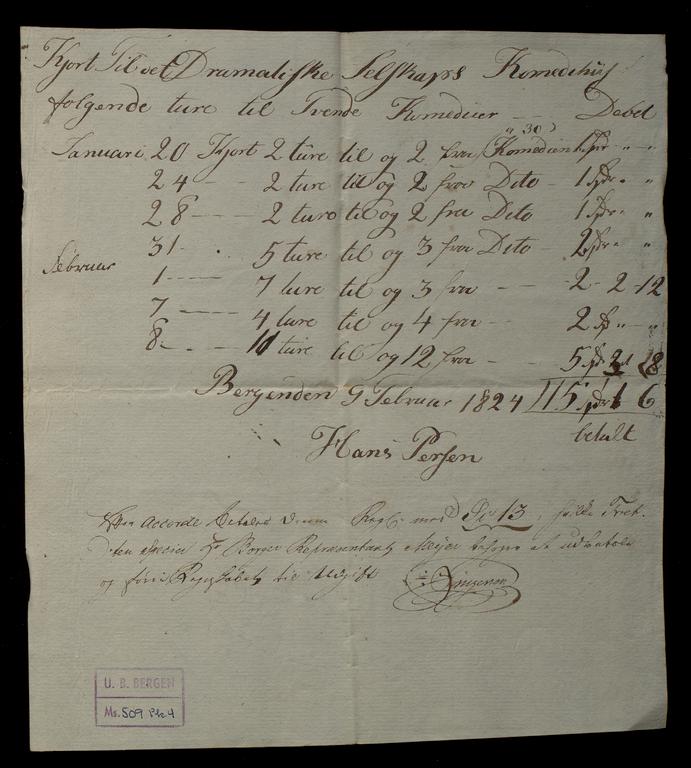 Kjort Til det Dramatiske Selskaps Komediehus
følgende ture til Trende Komedier - - Debel
" 30 )
Januari 20 Kjort 2 ture til og 2 fra Komedienh 1 spdr " - "
24 - - 2 ture til og 2 fra Dito - 1 spdr - "
28 - - - 2 ture til og 2 fra Dito 1 spdr - "
31 - . 5 ture til og 3 fra Dito - 2 spdr - "
Februar
1 - - - 7 ture til og 3 fra - - - 2 - 2 - 12
7 - - - 4 ture til og 4 fra - - 2 sp " - "
8 - - 11 ture til og 12 fra - - 5 spdr 3 18
Bergen den 9 Februar 1824 15 spdr 1 6
betalt
Hans Persen
accorde betales Regl: med Sp 13, hvilke Tret-
ten Specier Hr Borger Repræsentant Meyer behage at udbetale
og føre Regnskabet til Udgift
U. B. BERGEN
Ms. 509 Pk 4